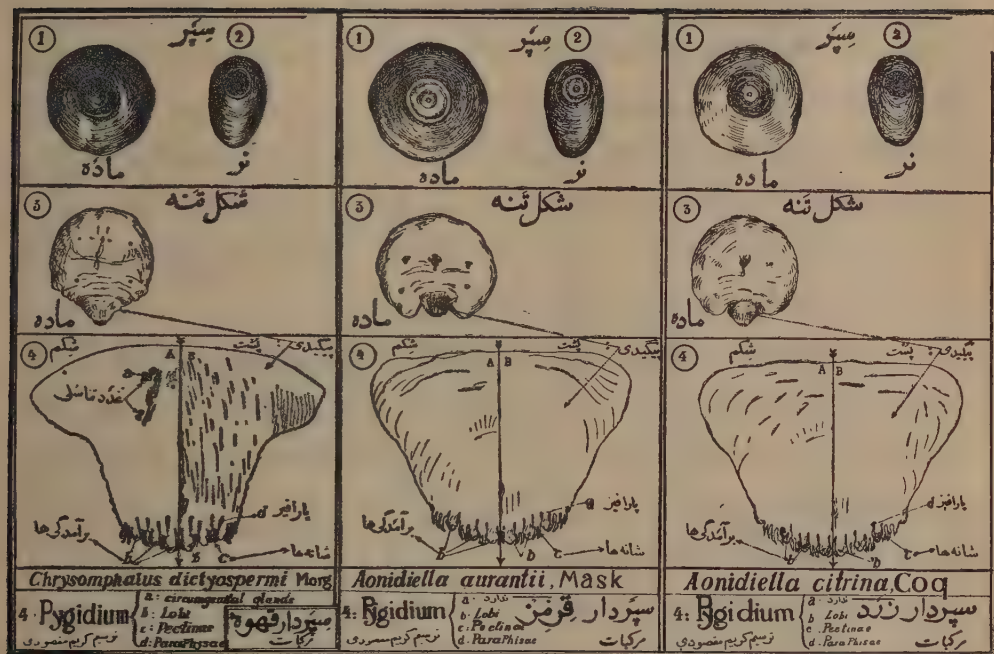 1 سپر 2
ماده نر
3 شکل تنه
ماده
4 شکم پشت پیگیدی
A B
a غدد تناسلی
پارافیز d
برآمدگی‌ها b b c شانه‌ها
Chrysomphalus dictyospermi Morg
4 : Pygidium
a : circumgenital glands
b : Lobi
c : Pectinae
d : Paraphysae
سپردار قهوه
مرکبات
ترسیم کریم مقصودی
1 سپر 2
ماده نر
3 شکل تنه
ماده
4 شکم پشت پیگیدی
A B
پارافیز d
برآمدگی‌ها b b c شانه‌ها
Aonidiella aurantii, Mask
4 : Pygidium
a - ندارد
b : Lobi
c : Pectinae
d : ParaPhisae
سپردار قرمز
مرکبات
ترسیم کریم مقصودی
1 سپر 2
ماده نر
3 شکل تنه
ماده
4 شکم پشت پیگیدی
A B
پارافیز d
برآمدگی‌ها b b c شانه‌ها
Aonidiella citrina, Coq
4 : Pygidium
a - ندارد
b Lobi
c : Pectinae
d : ParaPhisae
سپردار زرد
مرکبات
ترسیم کریم مقصودی